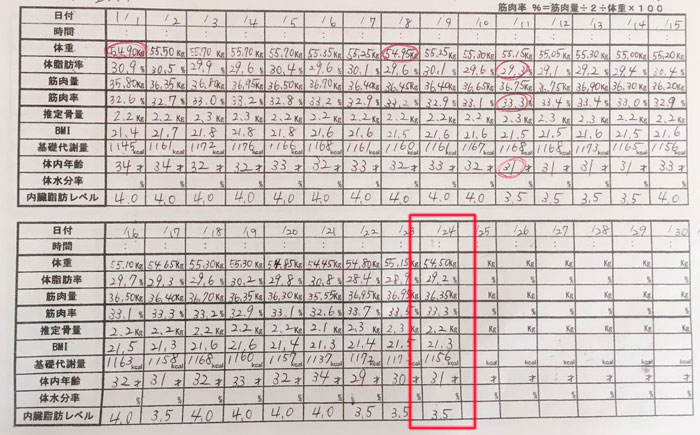 筋肉率 %=筋肉量÷2÷体重×100
日付 1/1 /2 /3 /4 /5 /6 /7 /8 /9 /10 /11 /12 /13 /14 /15
時間 : : : : : : : : : : : : : : :
体重 54.90Kg 55.50Kg 55.70Kg 55.70Kg 55.70Kg 55.35Kg 55.25Kg 54.95Kg 55.25Kg 55.30Kg 55.15Kg 55.05Kg 55.30Kg 55.00Kg 55.20Kg
体脂肪率 30.9% 30.5% 29.9% 29.6% 30.4% 29.6% 30.1% 29.6% 30.1% 29.6% 29.3% 29.1% 29.2% 29.4% 30.4%
筋肉量 35.80Kg 36.35Kg 36.80Kg 36.95Kg 36.50Kg 36.70Kg 36.40Kg 36.45Kg 36.40Kg 36.65Kg 36.75Kg 36.75Kg 36.90Kg 36.30Kg 36.20Kg
筋肉率 32.6% 32.7% 33.0% 33.2% 32.8% 33.2% 32.9% 33.2% 32.9% 33.1% 33.3% 33.4% 33.4% 33.0% 32.9%
推定骨量 2.2Kg 2.2Kg 2.3Kg 2.3Kg 2.2Kg 2.2Kg 2.2Kg 2.2Kg 2.2Kg 2.2Kg 2.3Kg 2.2Kg 2.3Kg 2.2Kg 2.2Kg
BMI 21.4 21.7 21.8 21.8 21.8 21.6 21.6 21.5 21.6 21.6 21.5 21.5 21.6 21.5 21.6
基礎代謝量 1145kcal 1161kcal 1172kcal 1176kcal 1166kcal 1168kcal 1161kcal 1160kcal 1161kcal 1167kcal 1168kcal 1168kcal 1173kcal 1165kcal 1156kcal
体内年齢 34才 34才 32才 32才 33才 32才 33才 32才 33才 32才 31才 31才 31才 31才 33才
体水分率 % % % % % % % % % % % % % % %
内臓脂肪レベル 4.0 4.0 4.0 4.0 4.0 4.0 4.0 4.0 4.0 4.0 3.5 3.5 3.5 3.5 4.0
日付 1/16 /17 /18 /19 /20 /21 /22 /23 /24 /25 /26 /27 /28 /29 /30
時間 : : : : : : : : : : : : : : :
体重 55.10Kg 54.65Kg 55.30Kg 55.30Kg 54.85Kg 54.45Kg 54.80Kg 55.15Kg 54.50Kg Kg Kg Kg Kg Kg Kg
体脂肪率 29.7% 29.3% 29.6% 30.2% 29.8% 30.8% 28.4% 28.9% 29.2% % % % % % %
筋肉量 36.50Kg 36.40Kg 36.70Kg 36.35Kg 36.30Kg 35.55Kg 36.95Kg 36.95Kg 36.35Kg Kg Kg Kg Kg Kg Kg
筋肉率 33.1% 33.3% 33.2% 32.9% 33.1% 32.6% 33.7% 33.5% 33.3% % % % % % %
推定骨量 2.2Kg 2.2Kg 2.2Kg 2.2Kg 2.2Kg 2.1Kg 2.3Kg 2.3Kg 2.2Kg Kg Kg Kg Kg Kg Kg
BMI 21.5 21.3 21.6 21.6 21.4 21.3 21.4 21.5 21.3
基礎代謝量 1163kcal 1158kcal 1168kcal 1160kcal 1157kcal 1137kcal 1172kcal kcal 1156kcal kcal kcal kcal kcal kcal kcal
体内年齢 32才 31才 32才 33才 32才 34才 29才 30才 31才 才 才 才 才 才 才
体水分率 % % % % % % % % % % % % % % %
内臓脂肪レベル 4.0 3.5 4.0 4.0 4.0 4.0 3.5 3.5 3.5